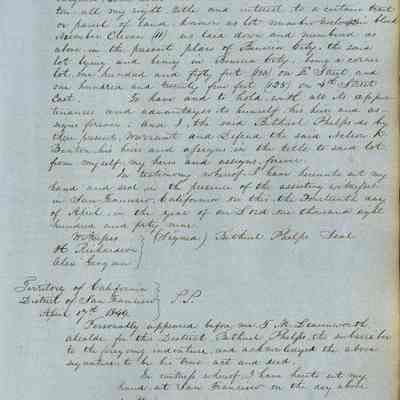 him all my right title and interest to a certain tract
or parcel of land known as lot number in block
Number Eleven (11) as laid down and numbered as
above in the present place of Benicia City, the said
lot lying and being in Benicia City, being a corner
lot one hundred and fifty feet (150) on E Street and
one hundred and twenty five feet (125) on 4th Street
East. To have and to hold with all its appur
tenances and advantages to himself his heirs and as
signs forever. And I the said Bethuel Phelps do by
these present, Warrant and Defend the said Nelson K
Benton his heirs and assigns in the title to said lot
from myself, my heirs and assigns forever.
In testimony whereof I have hereunto set my
hand and seal in the presence of the assisting witnesses
in San Francisco, California on this the Fourteenth day
of April in the year of our Lord one thousand eight
hundred and forty nine
Witnesses (Signed) Bethuel Phelps Seal
H Richardson
Alex
Territory of California
District of San Francisco S.S.
April 17th 1849
Personally appeared before me T. M. Leavenworth
alcalde for this District, Bethuel Phelps, the subscriber
to the foregoing indenture, and acknowledged the above
signature to be his true act and deed.
In witness whereof I have hereto set my
hand at San Francisco on the day above